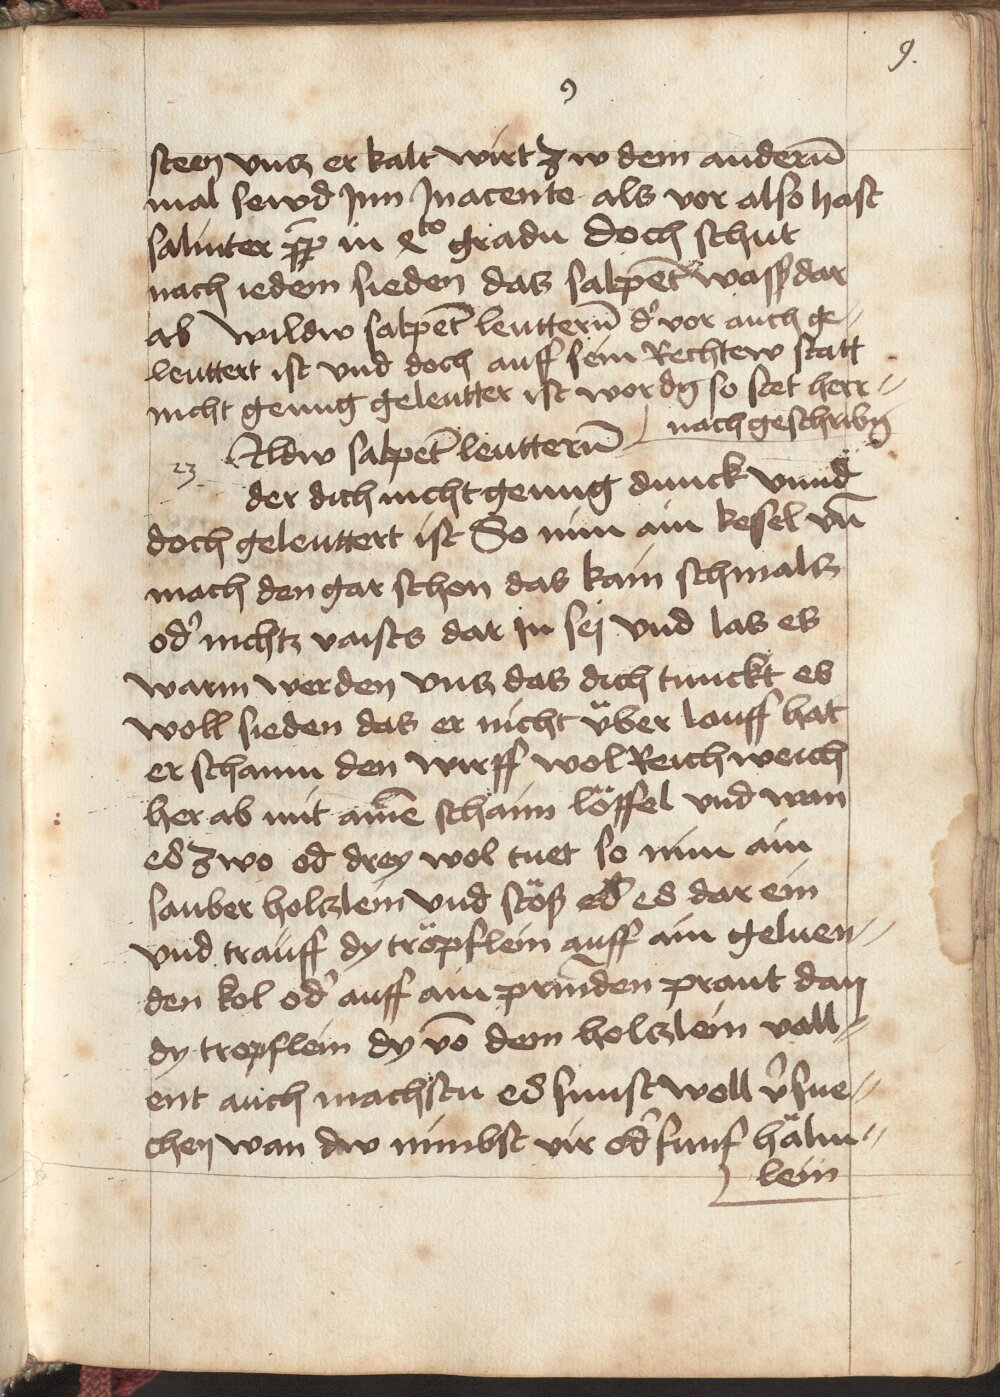 9.
9
steen vntz er kalt wirt Zw dem anderñ
mal sewd Jnn Jnacente als vor also hast
saliniter in 4to gradu doch schut
nach iedem sieden das salpet̄ wass dar
ab Wildw salpet̄ leutterñ d' vor auch ge„
leuttert ist vnd doch auff sein Rechtew statt
nicht genug geleutter ist wordn̄ so stet herr„
nach geschribn̄
23 Wildw salpet̄ leutterñ
der dich nicht genug dunck vnnd
doch geleuttert ist So nim ain kessel vn̄
mach den gar schon das kain schmaltz
od' nichtz vaists dar Jn sej vnd las es
warm werden vntz das dich tunckt es
woll sieden das er nicht über louff hat
er schaum den wirff wol Reich weich
her ab mit aine̅ schaim löffel vnd wan
ed Zwo od drey wol tuet so nim ain
sauber holtzlein vnd stöß ed ed dar ein
vnd trauff dy tröpflein auff ain geluen„
den kol od' auff ain prinden prant dan
dy tropflein dy vo̅ dem holtzlein vall„
ent auch machstu ed sunst woll v'sue„
chen wan dw nimbst vir od' funf hälm„
lein